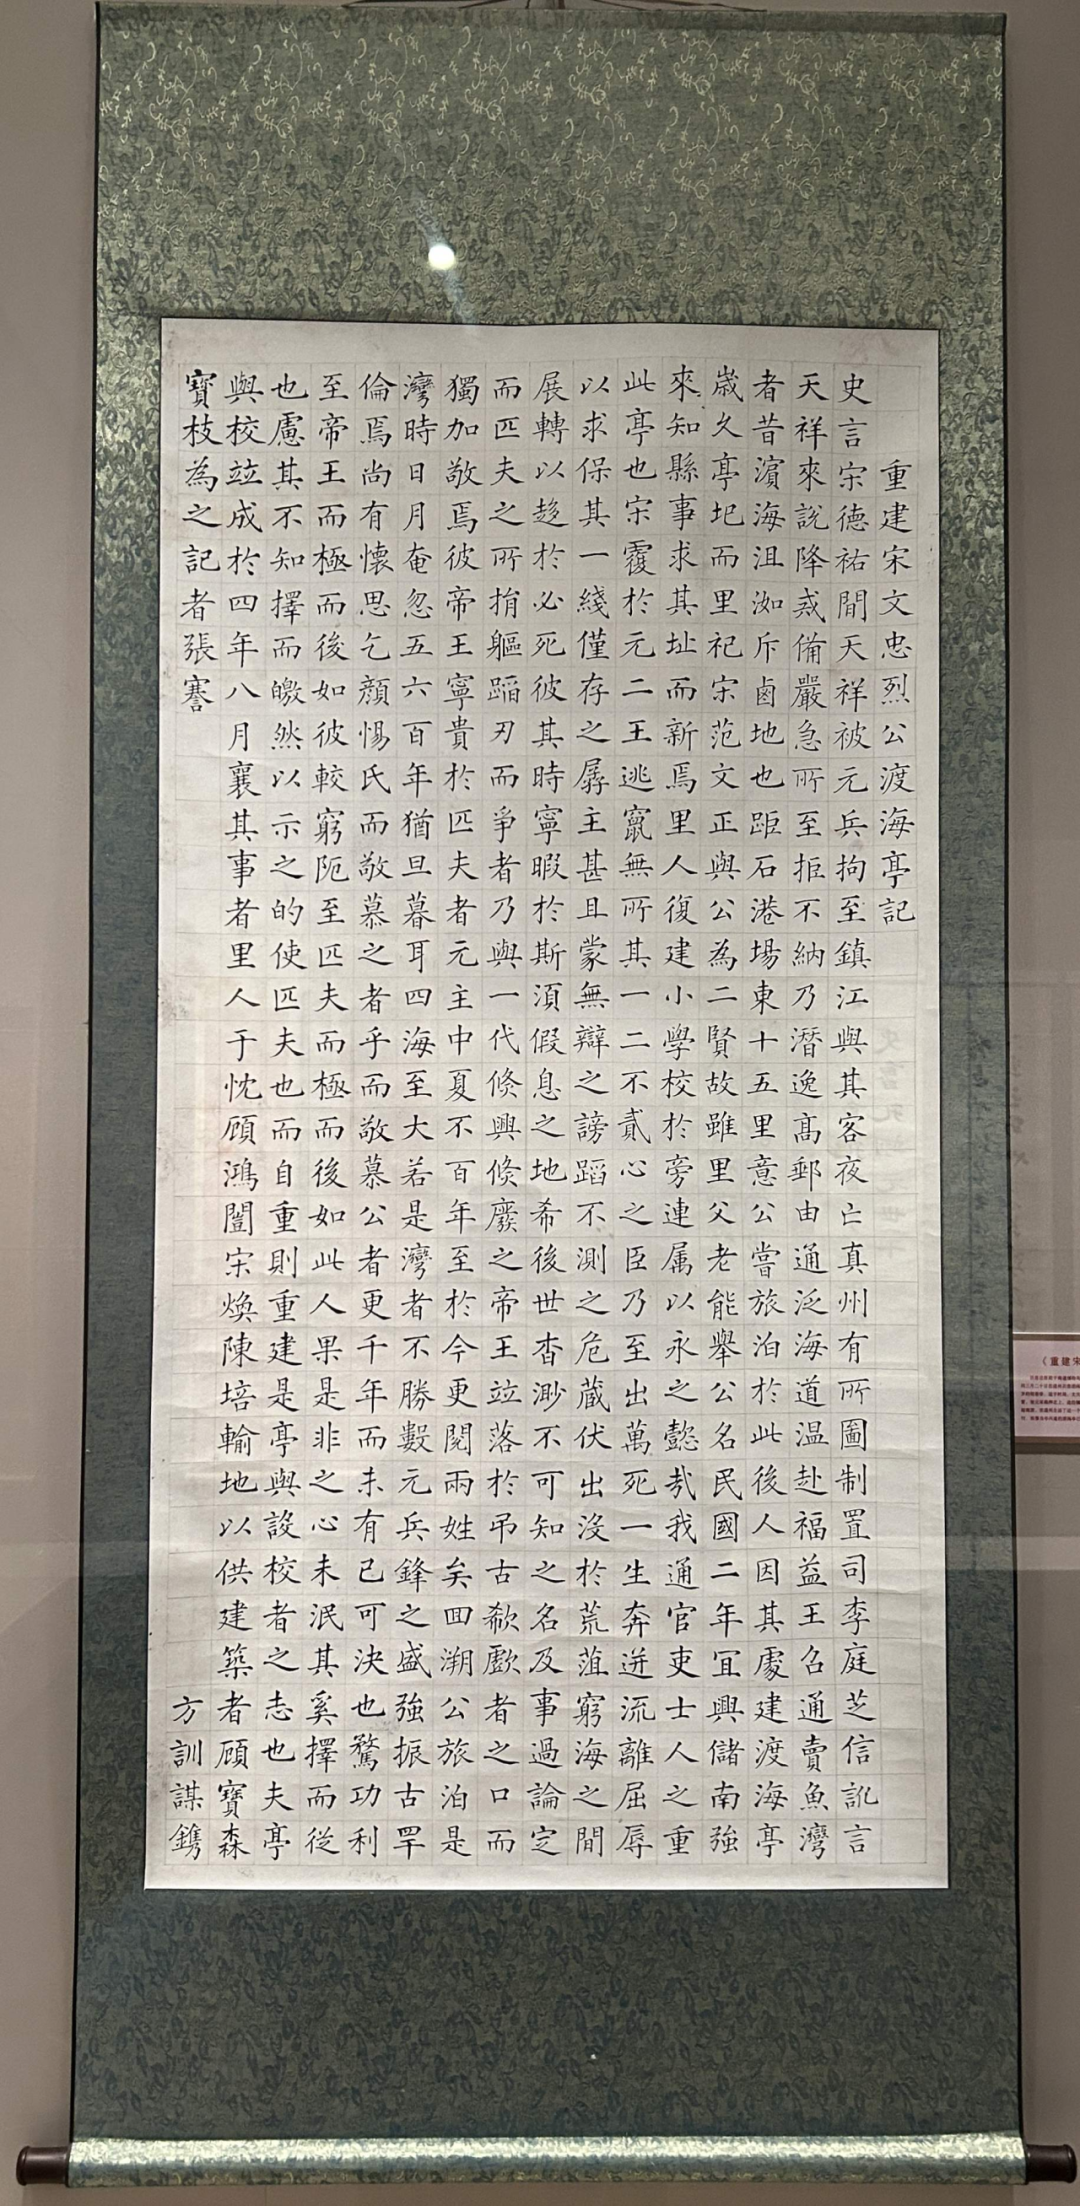 重建宋文忠烈公渡海亭記
史言宋德祐間天祥被元兵拘至鎮江與其客夜亡真州有所圖制置司李庭芝信訛言
天祥來說降戒備嚴急所至拒不納乃潛逸高郵由通泛海道温赴福益王召通賣魚灣
者昔濵海沮洳斥鹵地也距石港場東十五里意公嘗旅泊於此後人因其處建渡海亭
歲久亭圮而里祀宋范文正與公為二賢故雖里父老能舉公名民國二年宜興儲南強
來知縣事求其址而新焉里人復建小學校於旁連属以永之懿哉我通官吏士人之重
此亭也宋覆於元二王逃竄無所其一二不貳心之臣乃至出萬死一生奔迸流離屈辱
以求保其一綫僅存之孱主甚且蒙無辯之謗蹈不測之危蔵伏出沒於荒葅窮海之間
展轉以趍於必死彼其時寧暇於斯湏假息之地希後世杳渺不可知之名及事過論定
而匹夫之所捐軀蹈刃而爭者乃與一代倏興倏廢之帝王竝落於弔古欷歔者之口而
獨加敬焉彼帝王寧貴於匹夫者元主中夏不百年至於今更閱兩姓矣囬溯公旅泊是
灣時日月奄忽五六百年猶旦暮耳四海至大若是灣者不勝數元兵鋒之盛強振古罕
倫焉尚有懷思乞顏惕氏而敬慕之者乎而敬慕公者更千年而未有已可決也驚功利
至帝王而極而後如彼較窮阨至匹夫而極而後如此人果是非之心未泯其奚擇而從
也慮其不知擇而皦然以示之的使匹夫也而自重則重建是亭與設校者之志也夫亭
與校竝成於四年八月襄其事者里人于忱顧鴻闓宋煥陳培輸地以供建築者顧寶森
寶枝為之記者張謇
方訓謀鐫
《重建宋